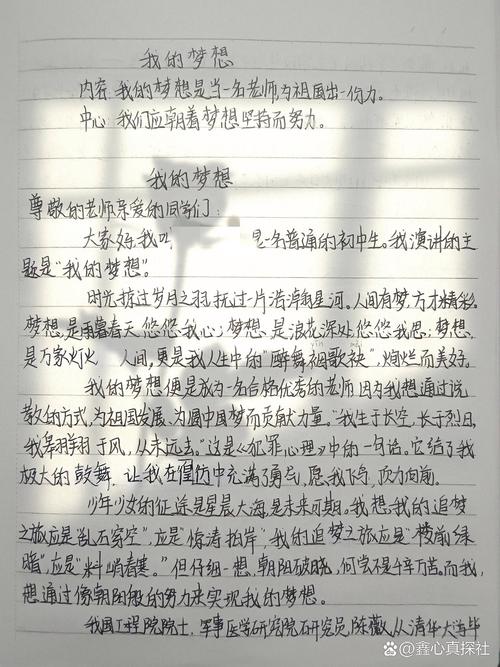 我的梦想
内容:我的梦想是当一名老师为祖国出一份力。
中心:我们应朝着梦想坚持而努力。
我的梦想
尊敬的老师亲爱的同学们:
大家好,我叫 是一名普通的初中生。我演讲的主
题是“我的梦想”。
时光掠过岁月之羽,抚过一片浩淼星河。人间有梦,方才精彩。
梦想,是雨暮春天,悠悠我心;梦想,是浪花深处,悠悠我思;梦想,
是万家灯火 人间,更是我人生中的“醉舞裀歌袂”,绚烂而美好。
yīn mèi
我的梦想便是成为一名合格优秀的老师,因为我想通过说
教的方式,为祖国发展,为圆中国梦而贡献力量。“我生于长空,长于烈日,
我翱翔于风,从未远去。”这是《犯罪心理》中的一句话。它给了我
极大的鼓舞,让我在彷徨中充满了勇气,愿我下马,顶力向前。
少年少女的征途是星晨大海,是未来可期。我想,我的追梦
之旅应是“乱石穿空”,应是“惊涛拍岸”,我的追梦之旅应是“楼前绿
暗”,应是“料峭春寒。”但仔细一想,朝阳破晓,何尝不是千辛万苦。而我,
想通过像朝阳般的努力来实现我的梦想。
我国工程院院士,军事医学研究院研究员陈薇,从清华大学毕
鑫心真探社